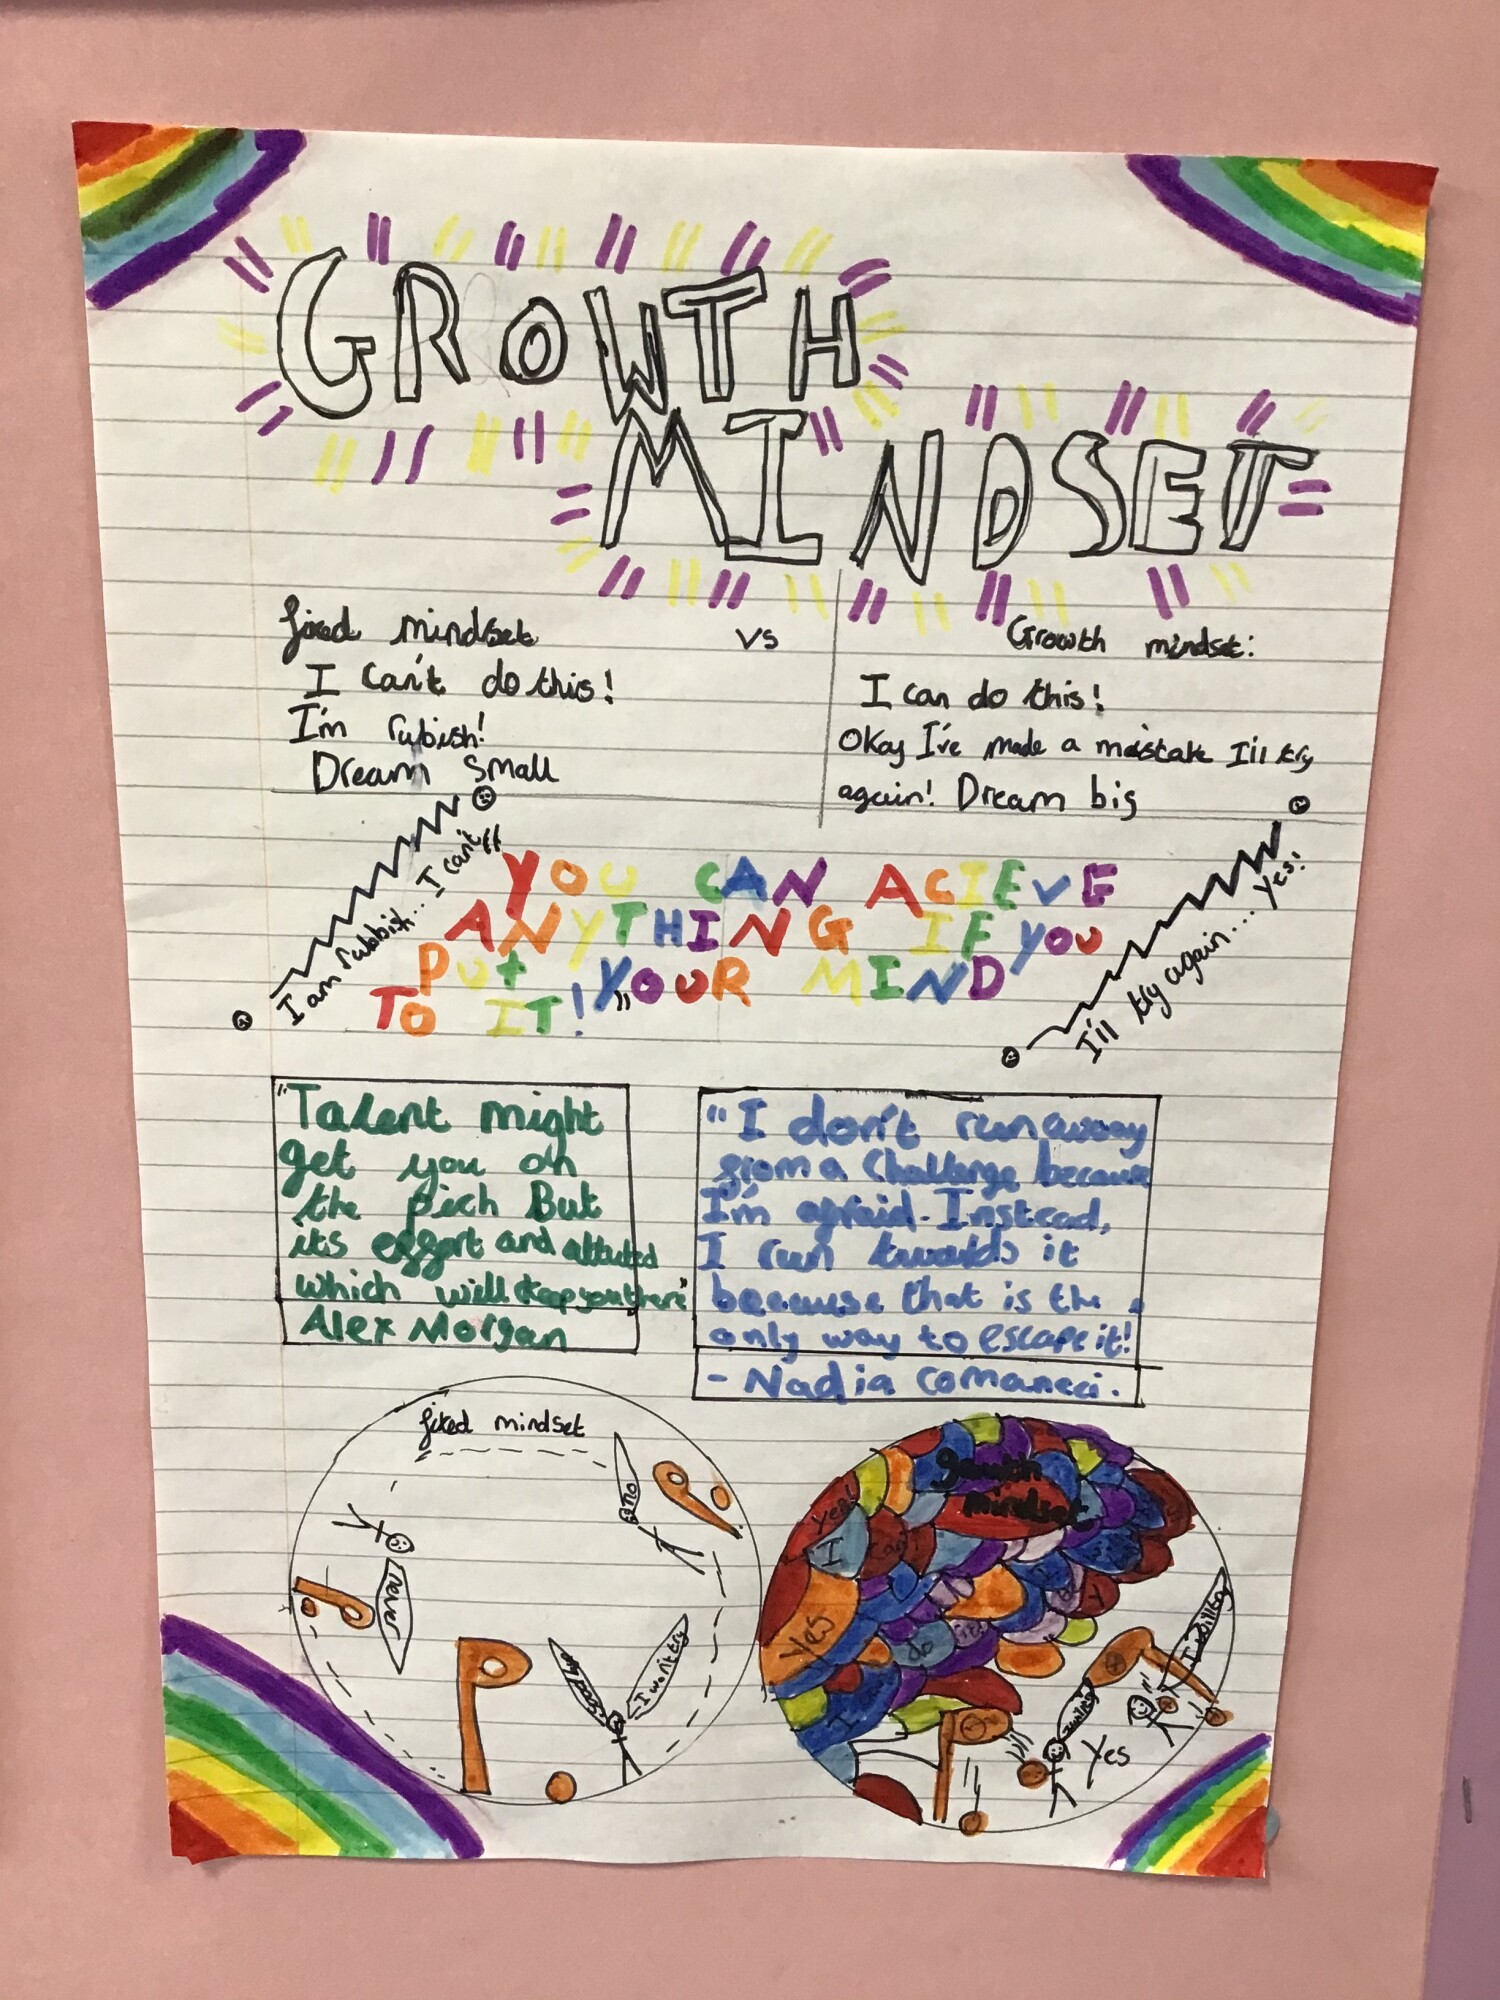 GROWTH
MINDSET
fixed mindset
vs
Growth mindset:
I can't do this!
I'm rubish!
Dream small
I can do this!
Okay I've made a mistake I'll try
again! Dream big
I am rubbish... I can't
YOU CAN ACIEVE
ANYTHING IF YOU
PUT YOUR MIND
TO IT!
I'll try again... Yes!
"Talent might
get you on
the pich But
its effort and
which will keep you there"
Alex Morgan
"I don't run away
from a challenge because
I'm afraid. Instead,
I run it
because that is the
only way to escape it!
- Nadia comaneci.
fixed mindset
no
never
I won't try
growth
mindset
yes!
I can
Yes
do
I
I willtry
Yes